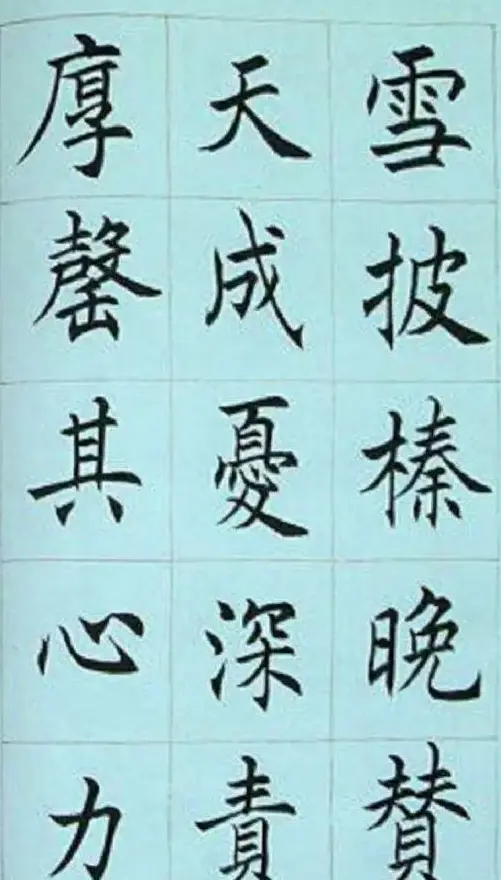 雪披榛晚賛
天成憂深責
厚罄其心力